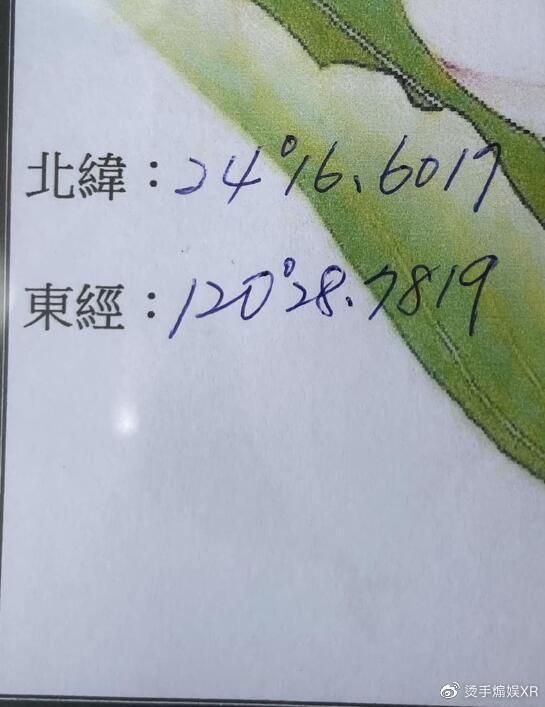 北緯：24°16.6017
東經：120°28.7819
烫手煸娱XR